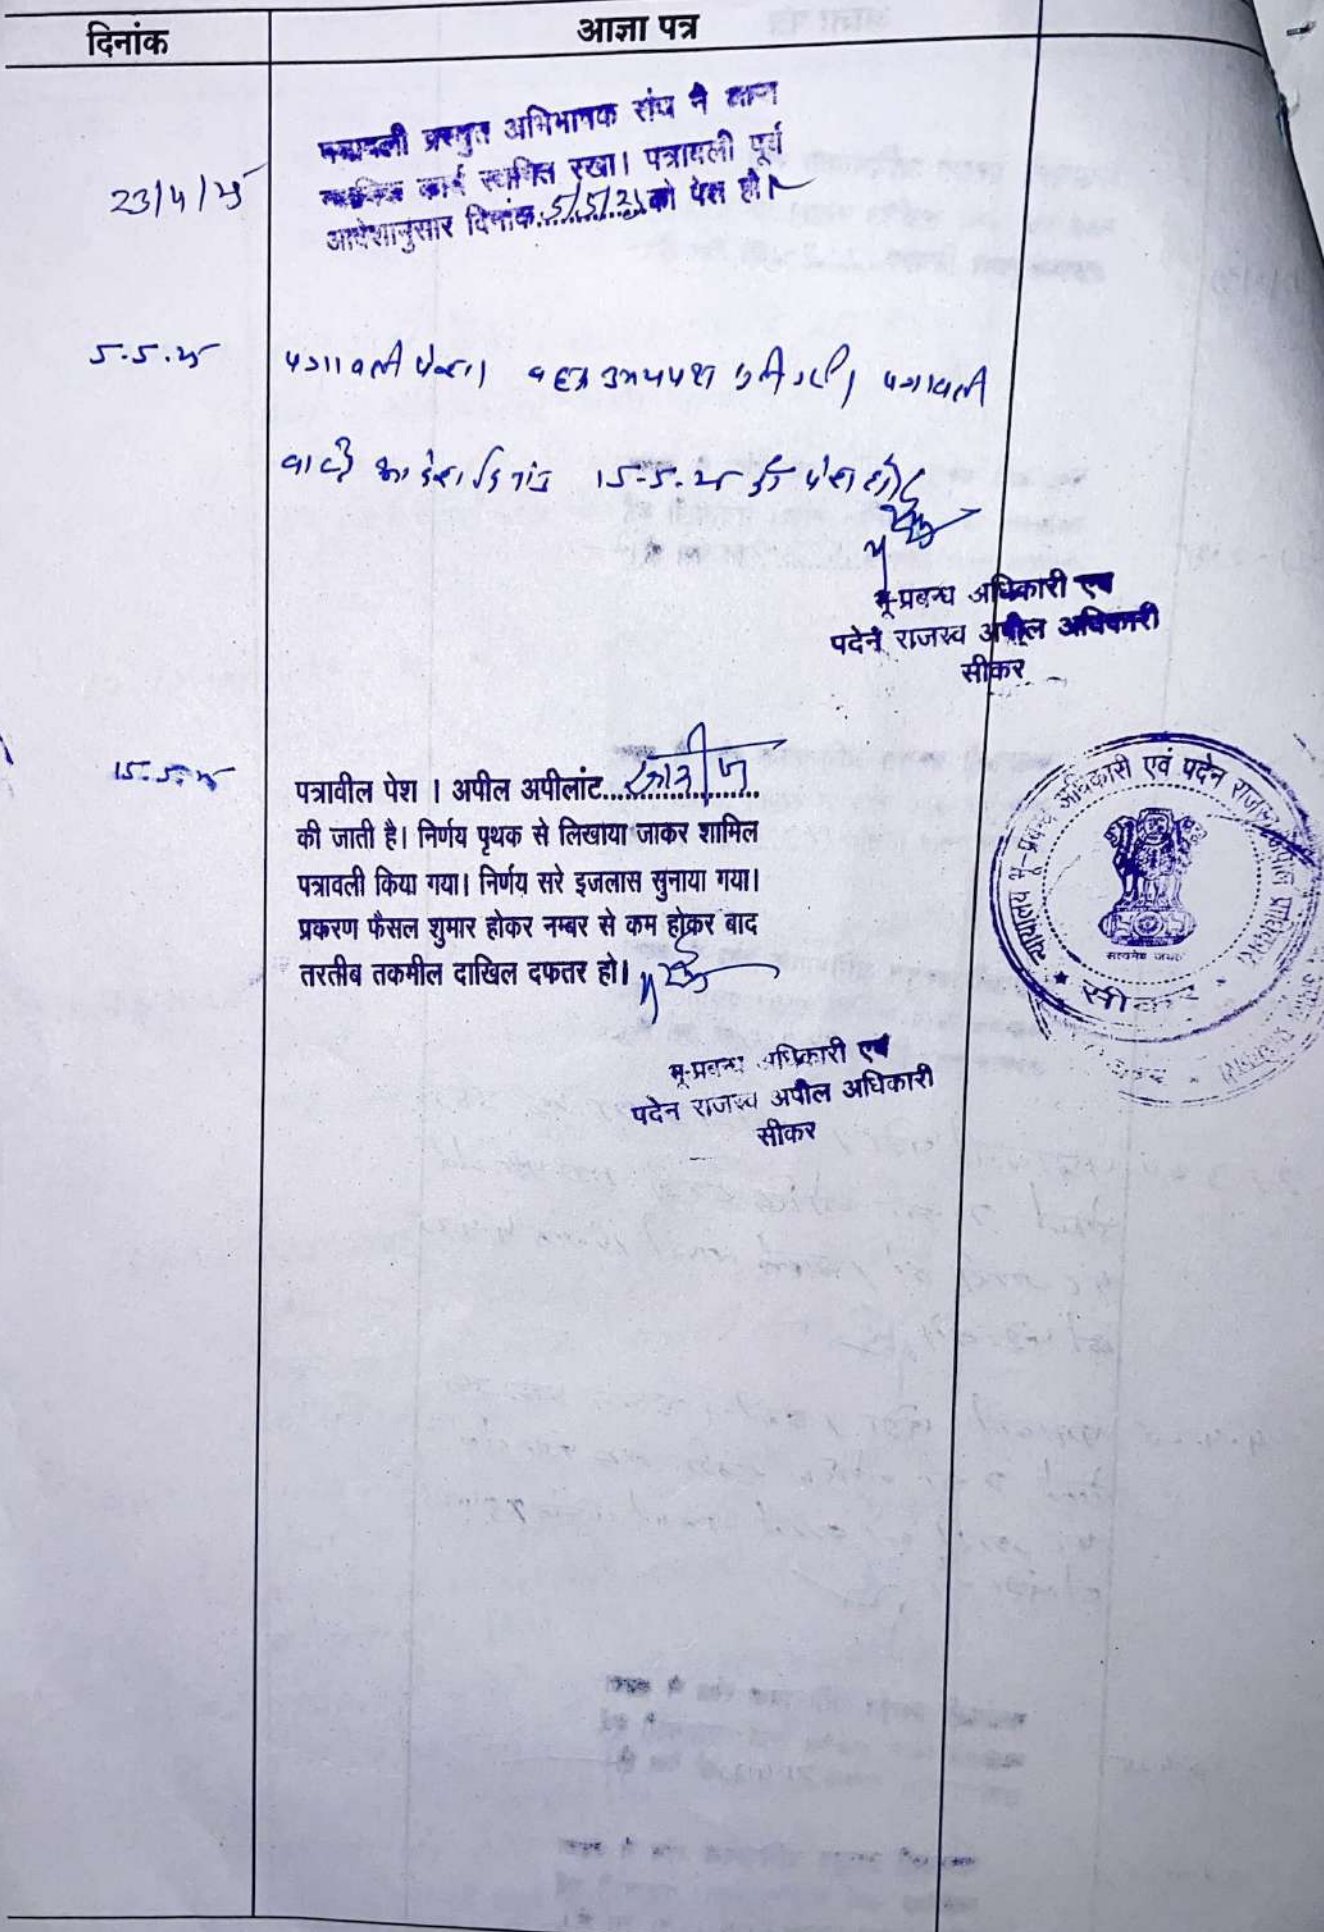 दिनांक
आज्ञा पत्र
पत्रावली प्रस्तुत अभिभाषक संघ ने आज
23/4/25
न्यायिक कार्य स्थगित रखा। पत्रावली पूर्व
आदेशानुसार दिनांक 5/5/25 को पेश हो।
5.5.25
पत्रावली पेश। बहस उभयपक्ष सुनी गयी। पत्रावली
वास्ते आदेश दिनांक 15-5-25 को पेश हो।
भू-प्रबन्ध अधिकारी एवं
पदेन राजस्व अपील अधिकारी
सीकर
15.5.25
पत्रावील पेश । अपील अपीलांट....खारीज....
की जाती है। निर्णय पृथक से लिखाया जाकर शामिल
पत्रावली किया गया। निर्णय सरे इजलास सुनाया गया।
प्रकरण फैसल शुमार होकर नम्बर से कम होकर बाद
तरतीब तकमील दाखिल दफतर हो।
भू-प्रबन्ध अधिकारी एवं
पदेन राजस्व अपील अधिकारी
सीकर
न्यायालय भू-प्रबन्ध अधिकारी एवं पदेन राजस्व अपील प्राधिकारी
सत्यमेव जयते
सीकर